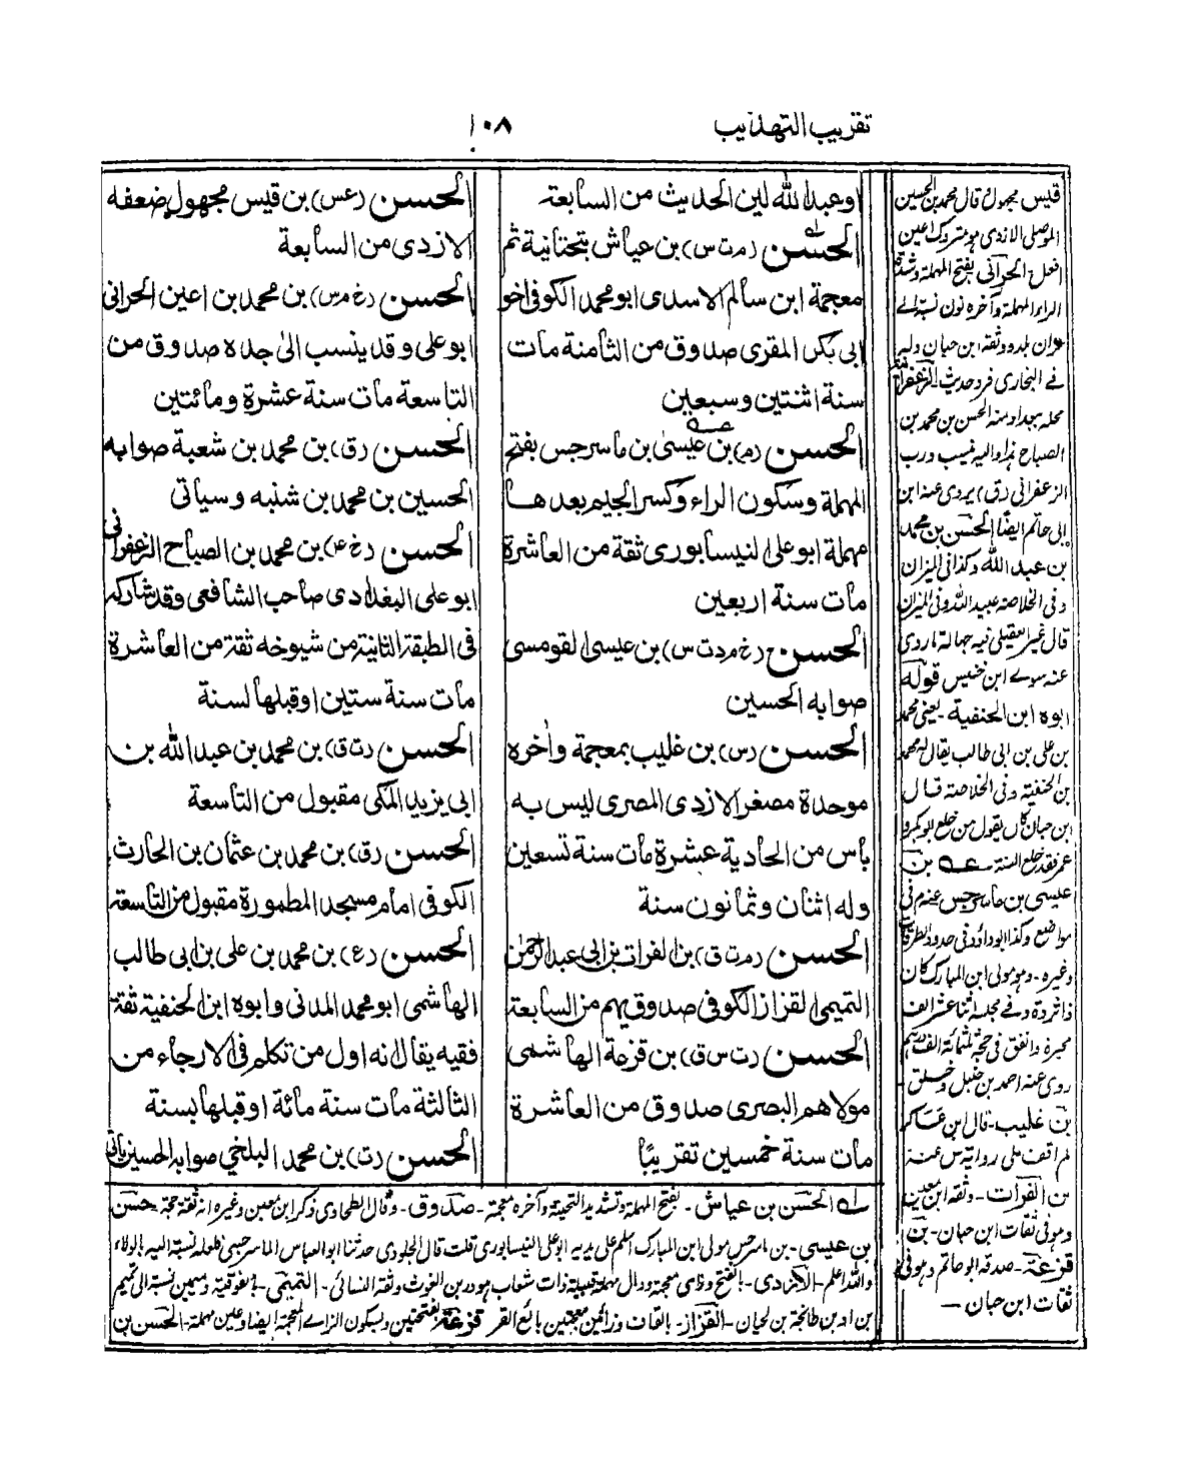 تقريب التهذيب
١٠٨
او عبد الله لين الحديث من السابعة
الحسن (م ت س) بن عياش بتحتانية ثم
معجمة ابن سالم الاسدى ابو محمد الكوفى اخو
ابى بكر المقرى صدوق من الثامنة مات
سنة اثنتين وسبعين
الحسن (م) بن عيسى بن ماسرجس بفتح
المهملة وسكون الراء وكسر الجيم بعدها
مهملة ابو على النيسابورى ثقة من العاشرة
مات سنة اربعين
الحسن (خ م د ت س) بن عيسى القومسى
صوابه الحسين
الحسن (س) بن غليب بمعجمة وآخره
موحدة مصغر الازدى المصرى ليس به
بأس من الحادية عشرة مات سنة تسعين
وله اثنان وثمانون سنة
الحسن (م ت ق) بن الفرات بن ابى عبد الرحمن
التميمى القزاز الكوفى صدوق يهم من السابعة
الحسن (ت س ق) بن قزعة الهاشمى
مولاهم البصرى صدوق من العاشرة
مات سنة خمسين تقريبًا
الحسن (عس) بن قيس مجهول ضعفه
الازدى من السابعة
الحسن (خ م س) بن محمد بن اعين الحرانى
ابو على وقد ينسب الى جده صدوق من
التاسعة مات سنة عشرة ومائتين
الحسن (ق) بن محمد بن شعبة صوابه
الحسين بن محمد بن شنبه وسياتى
الحسن (خ ع) بن محمد بن الصباح الزعفرانى
ابو على البغدادى صاحب الشافعى وقد شاركه
فى الطبقة الثانية من شيوخه ثقة من العاشرة
مات سنة ستين او قبلها لسنة
الحسن (ت ق) بن محمد بن عبد الله بن
ابى يزيد المكى مقبول من التاسعة
الحسن (ق) بن محمد بن عثمان بن الحارث
الكوفى امام مسجد المطمورة مقبول من التاسعة
الحسن (ع) بن محمد بن على بن ابى طالب
الهاشمى ابو محمد المدنى وابوه ابن الحنفية ثقة
فقيه يقال انه اول من تكلم فى الارجاء من
الثالثة مات سنة مائة او قبلها بسنة
الحسن (ت) بن محمد البلخي صوابه الحسين ياتى
قيس مجهول قال محمد بن الحسين
الموصلى الازدى هو متروك اعين
افعل الحرانى بفتح المهملة وشدة
الراء المهملة وآخره نون نسبة الے
حران بلدو وثقه ابن حبان وله
فے البخارى فرد حديث الزعفرانية
محلة ببغداد منه الحسن بن محمد بن
الصباح نزلها واليه نسب درب
الزعفرانى (ق) يروى عنه ابن
ابى حاتم ايضًا الحسن بن محمد
بن عبد الله وكذا فى الميزان
وفى الخلاصة عبيد الله وفى الميزان
قال غير العقيلى فيه جهالة ما روى
عنه سوے ابن خنيس قوله
ابوه ابن الحنفية - يعنى محمد
بن على بن ابى طالب يقال له محمد
بن الحنفية وفى الخلاصة قال
ابن حبان كان يقول من خلع ابو بكر و
عمر فقد خلع السنة عـه بن
عيسى بن ماسرجس عند م فى
مواضع وكذا ابو داؤد فى حدود الطرقات
وغيره - وهو مولى ابن المبارك كان
ذا ثروة وفے مجلسه اثنا عشر الف
محبرة وانفق فى حجة ثلثمائة الف درهم
روى عنه احمد بن حنبل وخلق
بن غليب - قال ابن عساكر
لم اقف على رواية س عنه
بن الفرات - وثقه ابن معين
وهو فى ثقات ابن حبان - بن
قزعة - صدقه ابو حاتم وهو فى
ثقات ابن حبان —
له الحسن بن عياش - بفتح المهملة وتشديد التحتية وآخره معجمة - صدوق - وقال الطحاوى ذكر ابن معين وغيره انه ثقة حجة حسن
بن عيسى - بن ماسرجس مولى ابن المبارك اسلم على يديه ابو على النيسابورى قلت قال الجلودى حدثنا ابو العباس الماسرجسى فلعله نسبة اليه بالولاء
والله اعلم - الازدى - بالفتح وزاى معجمة ودال مهملة قبيلة ذات شعاب هو درء بن الغوث وثقه النسائى - التميمى - بفوقية وميمين نسبة الى تميم
بن اد بن طابخة بن لحيان - القزاز - بالقاف وزائين معجمتين بائع القز قزعة بفتحتين وبسكون الزاے المعجمة ايضا وعين مهملة - الحسن بن